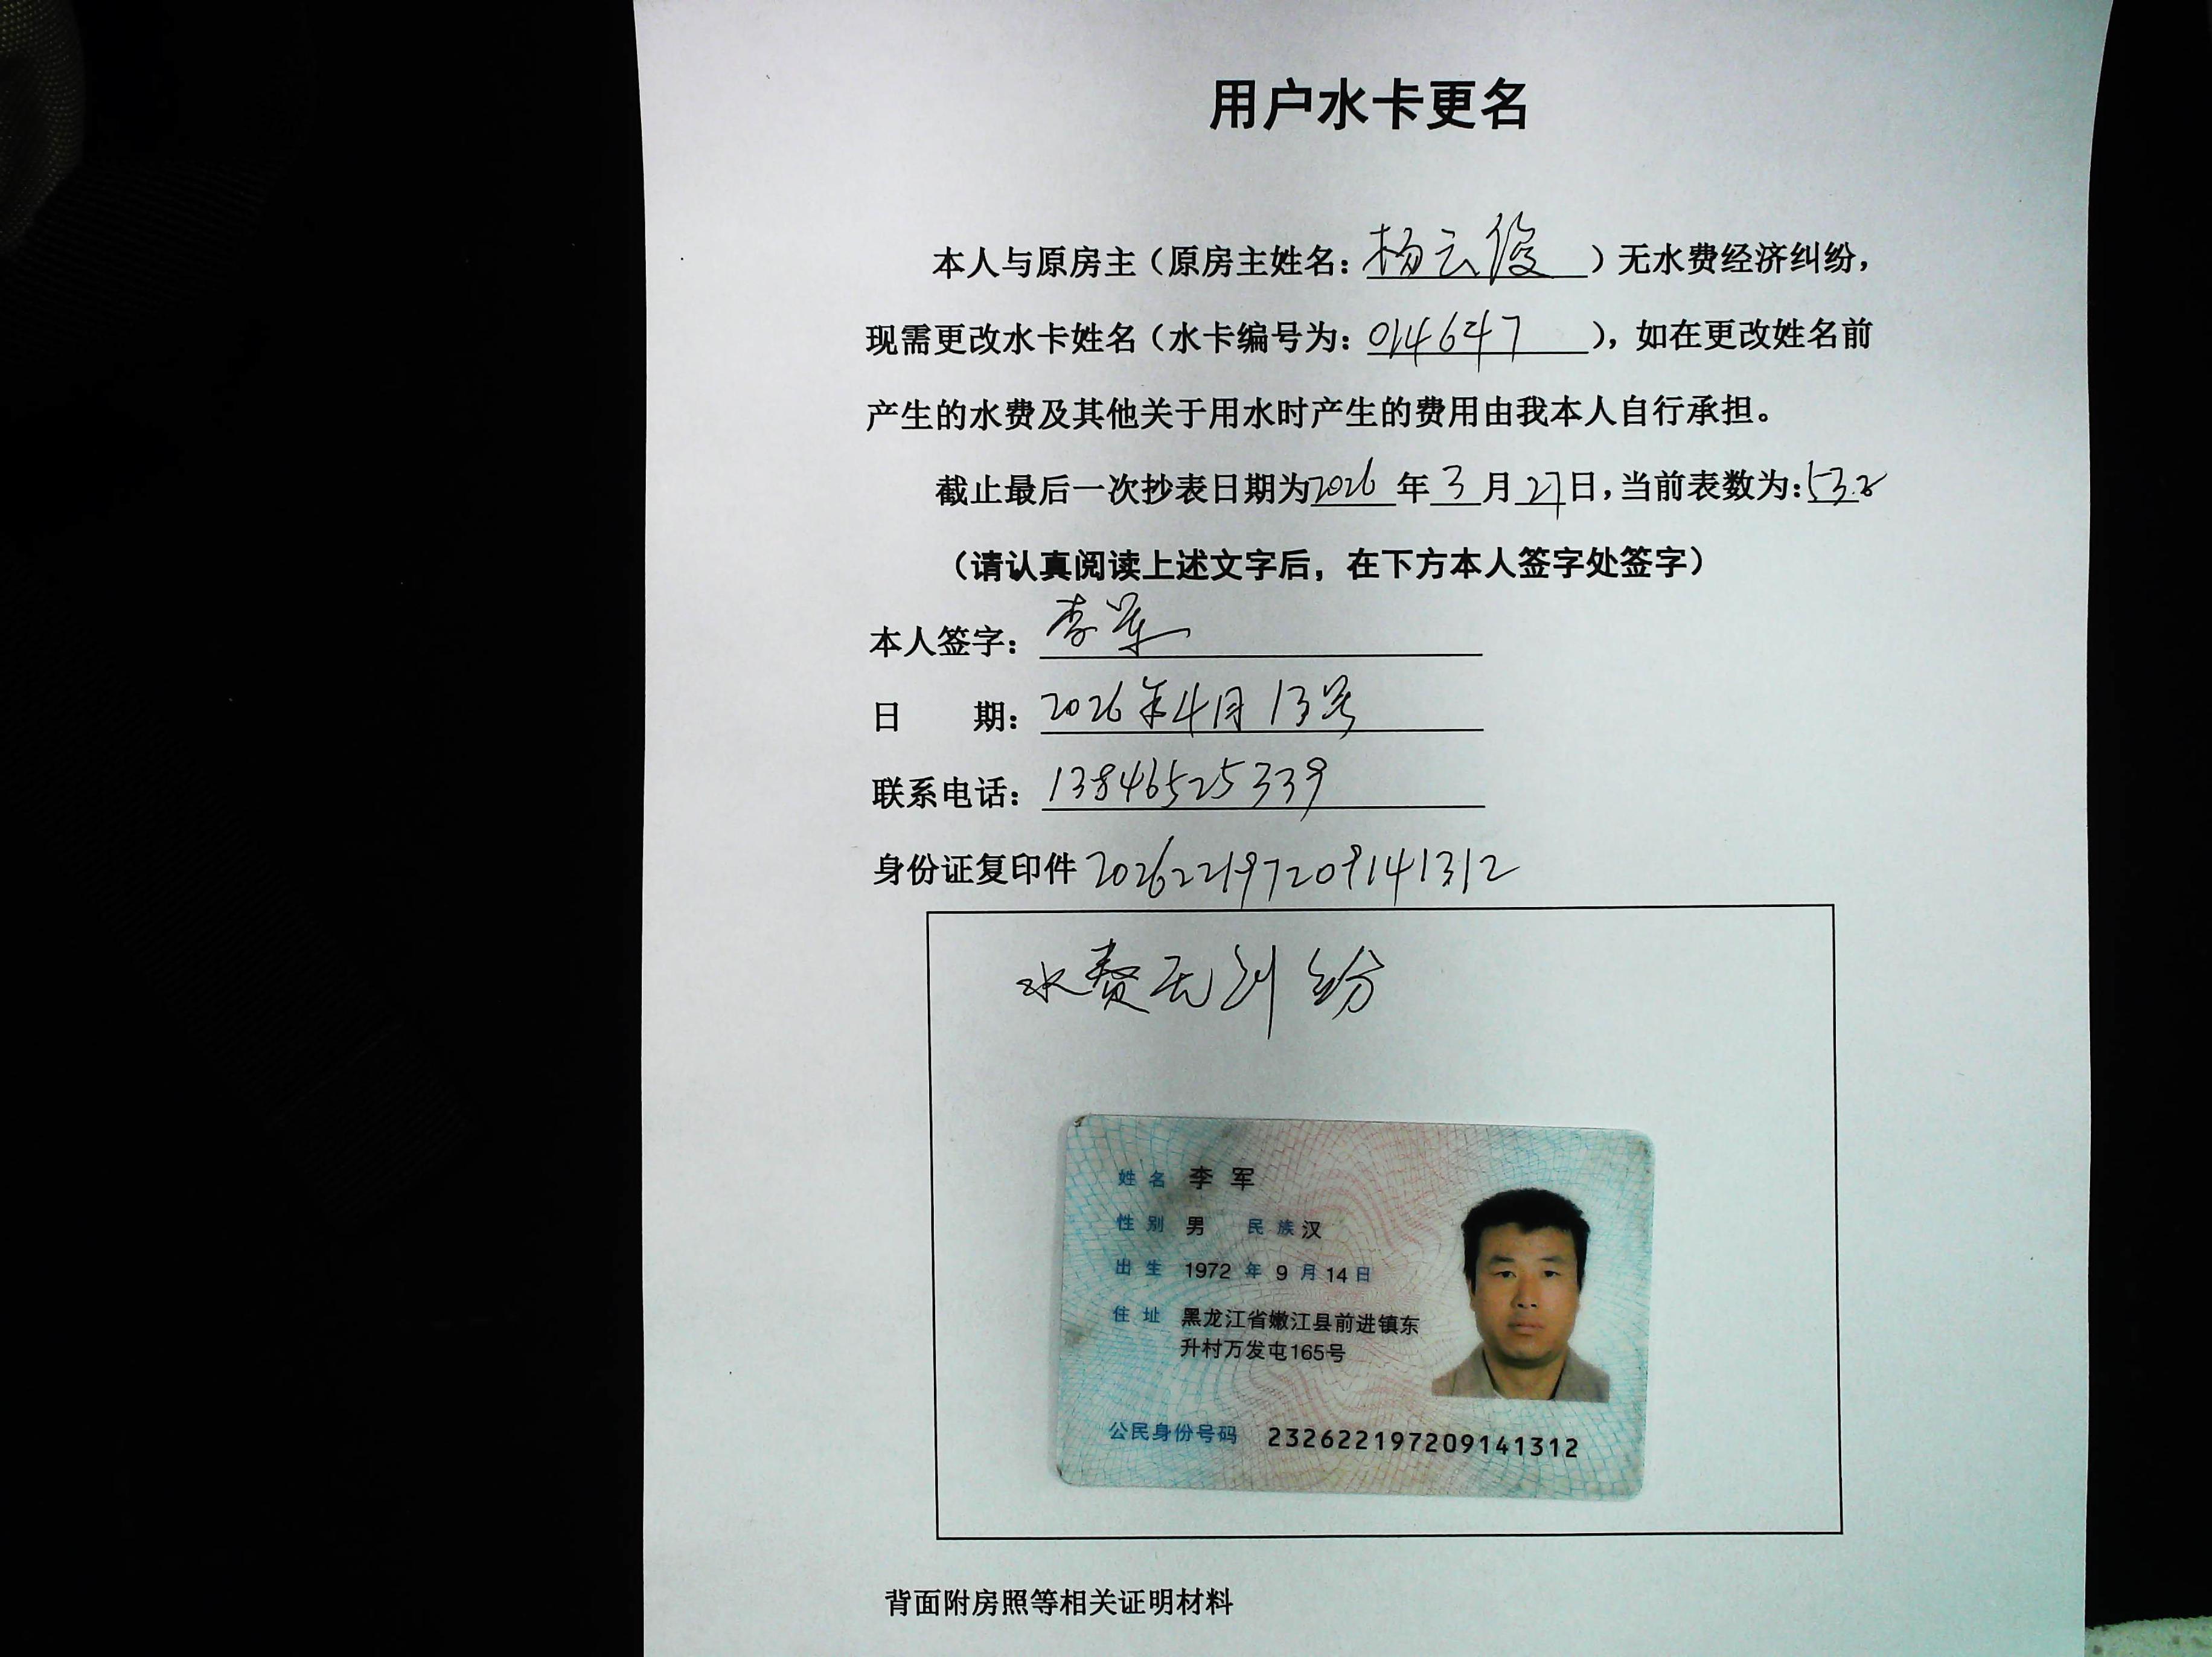 用户水卡更名
本人与原房主（原房主姓名：杨云俊）无水费经济纠纷，
现需更改水卡姓名（水卡编号为：014647），如在更改姓名前
产生的水费及其他关于用水时产生的费用由我本人自行承担。
截止最后一次抄表日期为2026年3月27日，当前表数为：53.8
（请认真阅读上述文字后，在下方本人签字处签字）
本人签字：李军
日 期：2026年4月13号
联系电话：13846525339
身份证复印件 202622197209141312
水费无纠纷
姓名 李军
性别 男 民族 汉
出生 1972 年 9 月 14 日
住址 黑龙江省嫩江县前进镇东
升村万发屯165号
公民身份号码 232622197209141312
背面附房照等相关证明材料